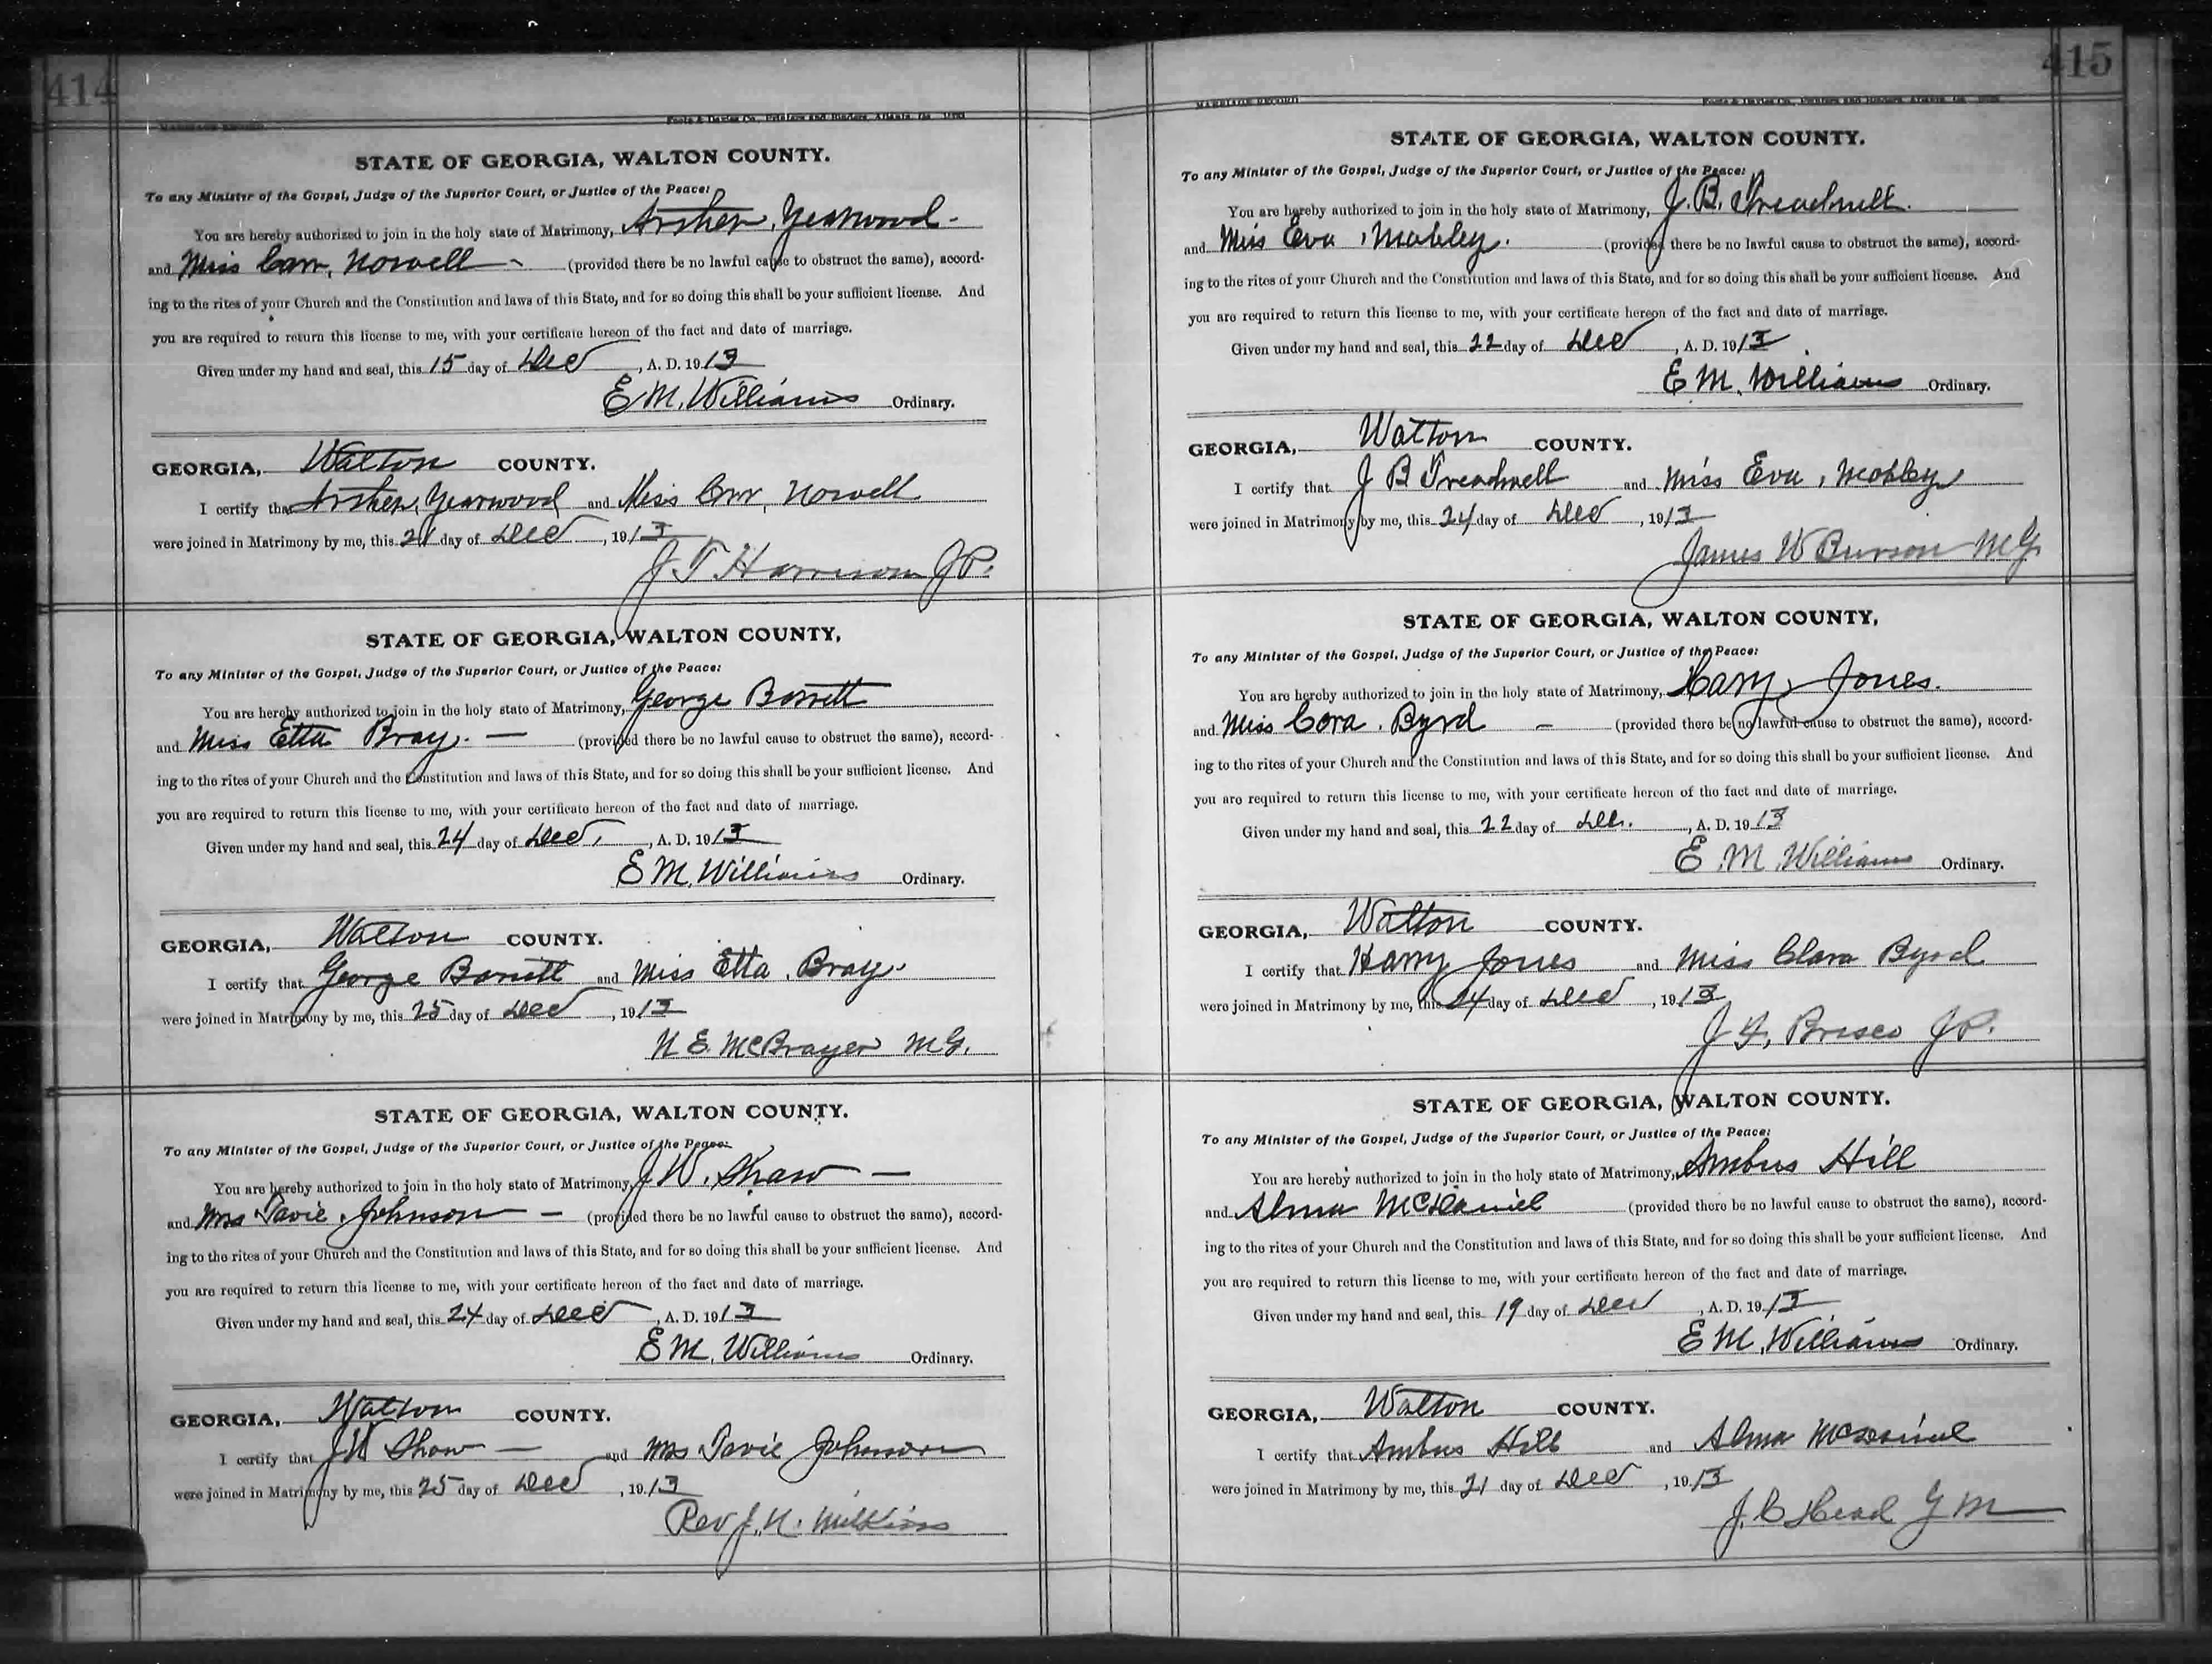 414
MARRIAGE RECORD
Foote & Davies Co., Printers and Binders, Atlanta, Ga.
STATE OF GEORGIA, WALTON COUNTY.
To any Minister of the Gospel, Judge of the Superior Court, or Justice of the Peace:
You are hereby authorized to join in the holy state of Matrimony, Arther, Yearwood
and Miss Nowell (provided there be no lawful cause to obstruct the same), accord-
ing to the rites of your Church and the Constitution and laws of this State, and for so doing this shall be your sufficient license. And
you are required to return this license to me, with your certificate hereon of the fact and date of marriage.
Given under my hand and seal, this 15 day of Dec, A. D. 1913
E M. Williams Ordinary.
GEORGIA, Walton COUNTY.
I certify that Arther, Yearwood and Miss Nowell
were joined in Matrimony by me, this 21 day of Dec, 1913
J. T Harrison JP.
STATE OF GEORGIA, WALTON COUNTY,
To any Minister of the Gospel, Judge of the Superior Court, or Justice of the Peace:
You are hereby authorized to join in the holy state of Matrimony, George Barrett
and Miss Etta Bray. — (provided there be no lawful cause to obstruct the same), accord-
ing to the rites of your Church and the Constitution and laws of this State, and for so doing this shall be your sufficient license. And
you are required to return this license to me, with your certificate hereon of the fact and date of marriage.
Given under my hand and seal, this 24 day of Dec, A. D. 1913
E M. Williams Ordinary.
GEORGIA, Walton COUNTY.
I certify that George Barrett and Miss Etta. Bray.
were joined in Matrimony by me, this 25 day of Dec, 1913
N. E. McBrayer M.G.
STATE OF GEORGIA, WALTON COUNTY.
To any Minister of the Gospel, Judge of the Superior Court, or Justice of the Peace:
You are hereby authorized to join in the holy state of Matrimony, J. W. Shaw —
and Mrs Tavie. Johnson — (provided there be no lawful cause to obstruct the same), accord-
ing to the rites of your Church and the Constitution and laws of this State, and for so doing this shall be your sufficient license. And
you are required to return this license to me, with your certificate hereon of the fact and date of marriage.
Given under my hand and seal, this 24 day of Dec, A. D. 1913
E M. Williams Ordinary.
GEORGIA, Walton COUNTY.
I certify that J W Shaw — and Mrs Tavie Johnson
were joined in Matrimony by me, this 25 day of Dec, 1913
Rev J. N.
415
MARRIAGE RECORD
Foote & Davies Co., Printers and Binders, Atlanta, Ga.
STATE OF GEORGIA, WALTON COUNTY.
To any Minister of the Gospel, Judge of the Superior Court, or Justice of the Peace:
You are hereby authorized to join in the holy state of Matrimony, J. B. Treadwell.
and Miss Eva, Mobley. (provided there be no lawful cause to obstruct the same), accord-
ing to the rites of your Church and the Constitution and laws of this State, and for so doing this shall be your sufficient license. And
you are required to return this license to me, with your certificate hereon of the fact and date of marriage.
Given under my hand and seal, this 22 day of Dec, A. D. 1913
E M. Williams Ordinary.
GEORGIA, Walton COUNTY.
I certify that J B Treadwell and Miss Eva, Mobley
were joined in Matrimony by me, this 24 day of Dec, 1913
James W Burson M.G.
STATE OF GEORGIA, WALTON COUNTY,
To any Minister of the Gospel, Judge of the Superior Court, or Justice of the Peace:
You are hereby authorized to join in the holy state of Matrimony, Harry Jones.
and Miss Cora. Byrd — (provided there be no lawful cause to obstruct the same), accord-
ing to the rites of your Church and the Constitution and laws of this State, and for so doing this shall be your sufficient license. And
you are required to return this license to me, with your certificate hereon of the fact and date of marriage.
Given under my hand and seal, this 22 day of Dec., A. D. 1913
E. M. Williams Ordinary.
GEORGIA, Walton COUNTY.
I certify that Harry Jones and Miss Clara Byrd
were joined in Matrimony by me, this 24 day of Dec, 1913
J. F. Brisco J.P.
STATE OF GEORGIA, WALTON COUNTY.
To any Minister of the Gospel, Judge of the Superior Court, or Justice of the Peace:
You are hereby authorized to join in the holy state of Matrimony, Ambus Hill
and Alma McDaniel (provided there be no lawful cause to obstruct the same), accord-
ing to the rites of your Church and the Constitution and laws of this State, and for so doing this shall be your sufficient license. And
you are required to return this license to me, with your certificate hereon of the fact and date of marriage.
Given under my hand and seal, this 19 day of Dec, A. D. 1913
E M. Williams Ordinary.
GEORGIA, Walton COUNTY.
I certify that Ambus Hill and Alma McDaniel
were joined in Matrimony by me, this 21 day of Dec, 1913
J. C Head G M